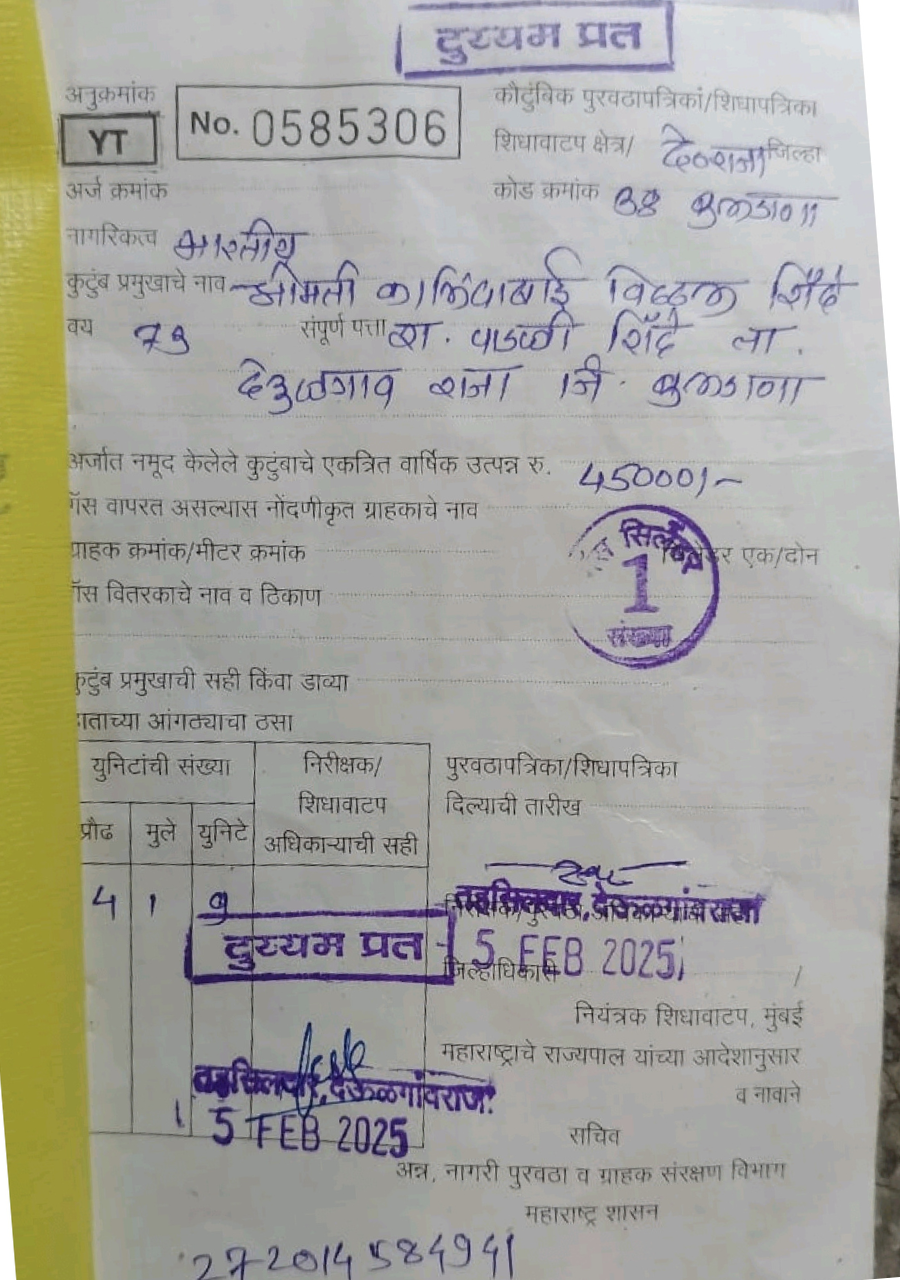 दुय्यम प्रत
अनुक्रमांक
YT
No. 0585306
कौटुंबिक पुरवठापत्रिका/शिधापत्रिका
शिधावाटप क्षेत्र/ देऊ.राजा जिल्हा
अर्ज क्रमांक
कोड क्रमांक बुलडाणा
नागरिकत्व भारतीय
कुटुंब प्रमुखाचे नाव श्रीमती विठ्ठल शिंदे
वय 73 संपूर्ण पत्ता रा. पाडळी शिंदे ता.
देउळगाव राजा जि. बुलडाणा
अर्जात नमूद केलेले कुटुंबाचे एकत्रित वार्षिक उत्पन्न रु. 45000/-
गॅस वापरत असल्यास नोंदणीकृत ग्राहकाचे नाव
ग्राहक क्रमांक/मीटर क्रमांक सिलेंडर एक/दोन
सिलेंडर
1
संख्या
गॅस वितरकाचे नाव व ठिकाण
कुटुंब प्रमुखाची सही किंवा डाव्या
हाताच्या आंगठ्याचा ठसा
युनिटांची संख्या
निरीक्षक/
शिधावाटप
अधिकाऱ्याची सही
पुरवठापत्रिका/शिधापत्रिका
दिल्याची तारीख
प्रौढ मुले युनिटे
4 1 9
तहसिलदार, देऊळगांवराजा
दुय्यम प्रत
5 FEB 2025
जिल्हाधिकारी /
नियंत्रक शिधावाटप, मुंबई
महाराष्ट्राचे राज्यपाल यांच्या आदेशानुसार
व नावाने
तहसिलदार, देऊळगांवराजा
5 FEB 2025
सचिव
अन्न, नागरी पुरवठा व ग्राहक संरक्षण विभाग
महाराष्ट्र शासन
272014584941